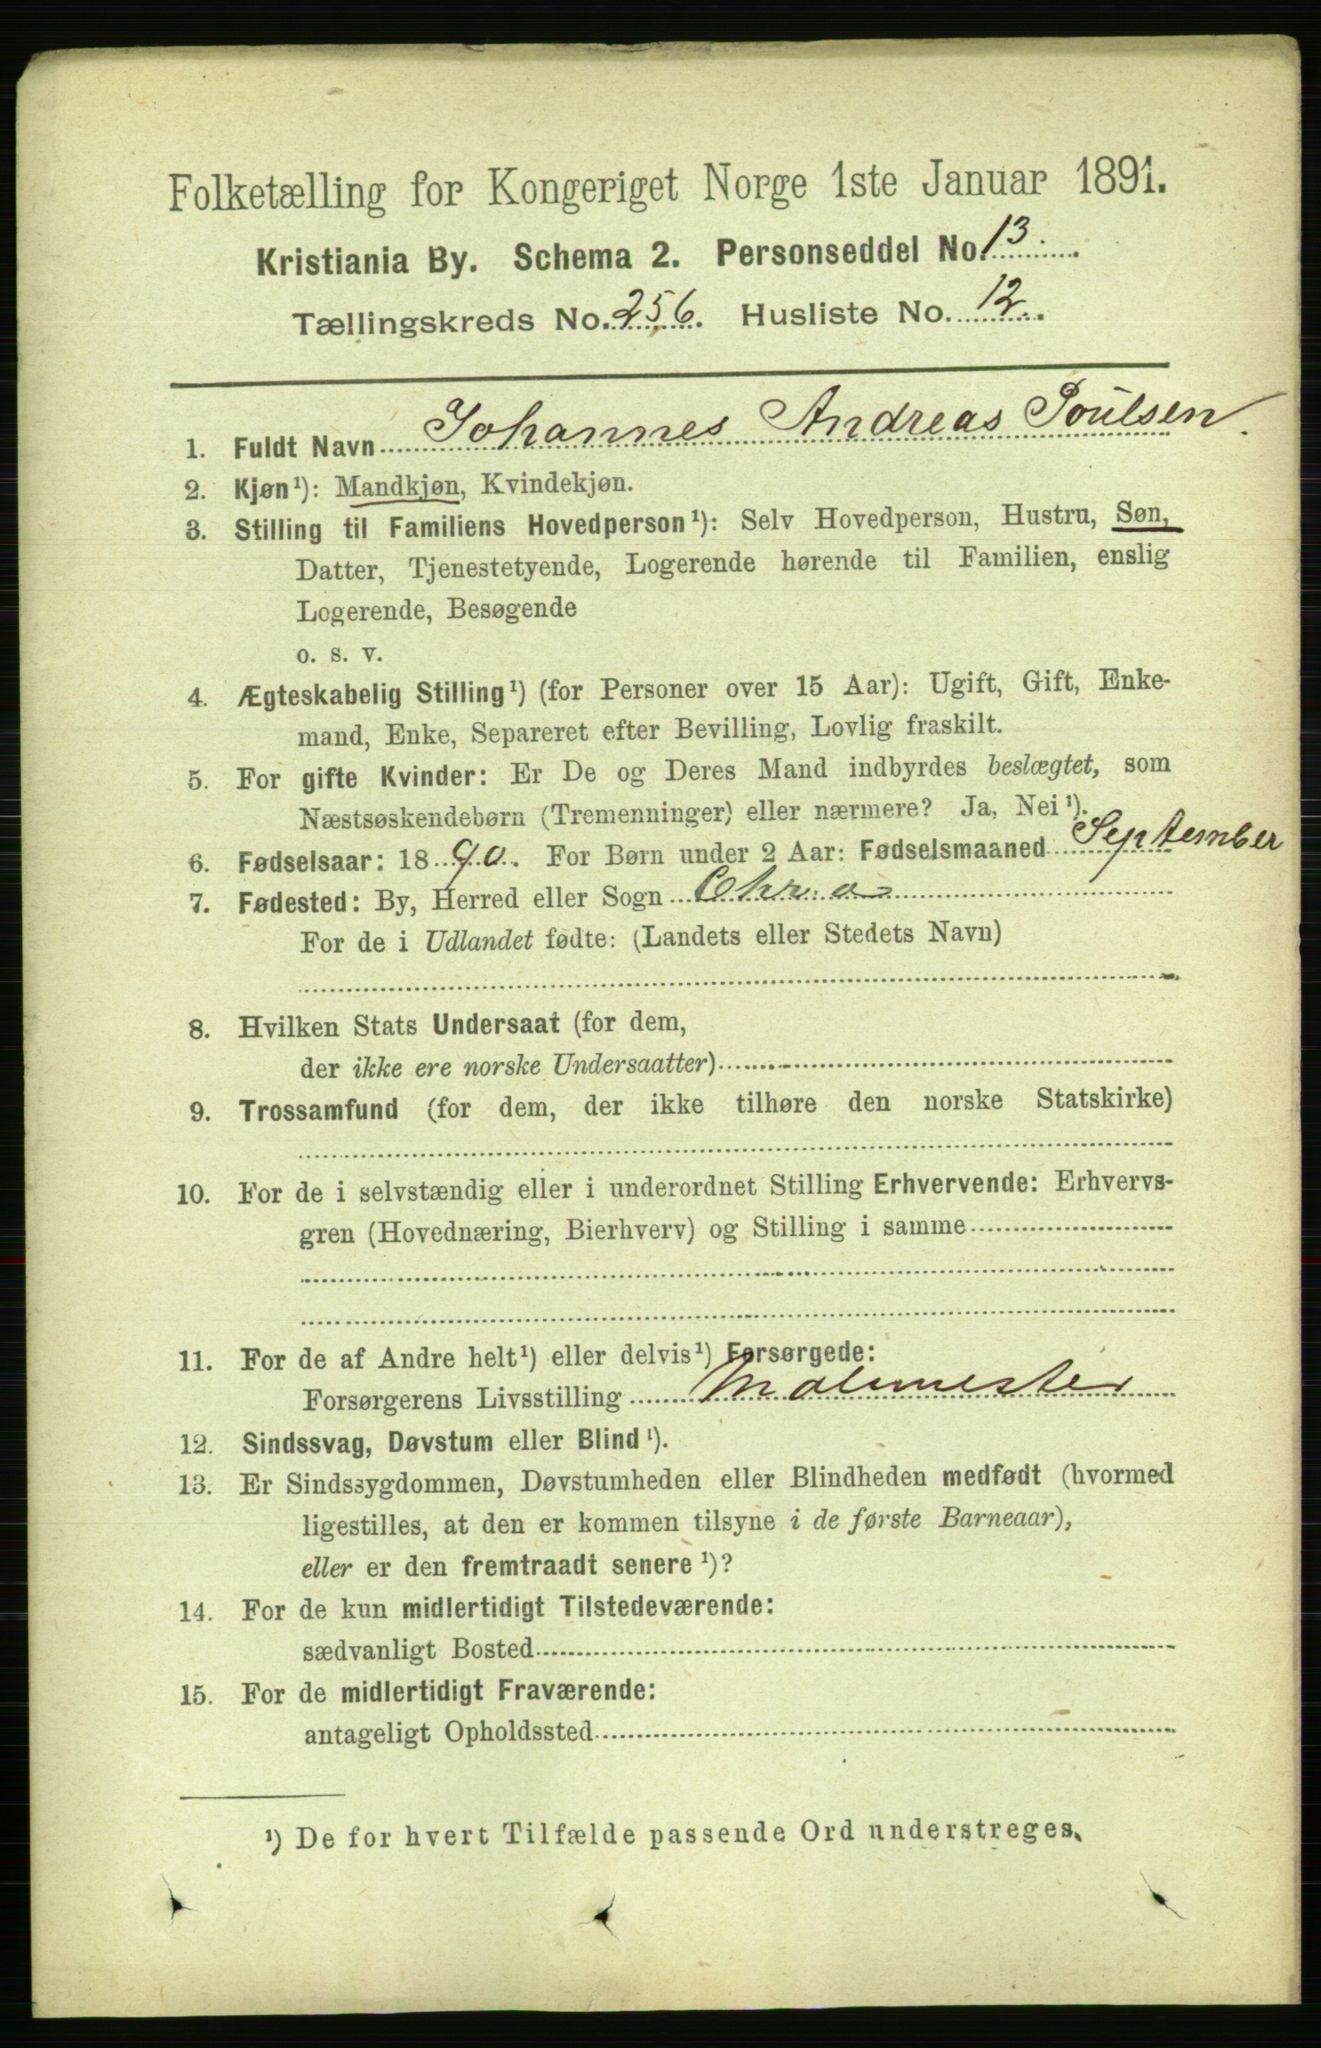 Folketælling for Kongeriget Norge 1ste Januar 1891.
Kristiania By. Schema 2. Personseddel No. 13
Tællingskreds No. 256. Husliste No. 12.
1. Fuldt Navn Johannes Andreas Poulsen.
2. Kjøn¹): Mandkjøn, Kvindekjøn.
3. Stilling til Familiens Hovedperson¹): Selv Hovedperson, Hustru, Søn,
Datter, Tjenestetyende, Logerende hørende til Familien, enslig
Logerende, Besøgende
o. s. v.
4. Ægteskabelig Stilling¹) (for Personer over 15 Aar): Ugift, Gift, Enke-
mand, Enke, Separeret efter Bevilling, Lovlig fraskilt.
5. For gifte Kvinder: Er De og Deres Mand indbyrdes beslægtet, som
Næstsøskendebørn (Tremenninger) eller nærmere? Ja, Nei¹).
6. Fødselsaar: 1890. For Børn under 2 Aar: Fødselsmaaned September
7. Fødested: By, Herred eller Sogn Chr.a
For de i Udlandet fødte: (Landets eller Stedets Navn)
8. Hvilken Stats Undersaat (for dem,
der ikke ere norske Undersaatter)
9. Trossamfund (for dem, der ikke tilhøre den norske Statskirke)
10. For de i selvstændig eller i underordnet Stilling Erhvervende: Erhvervs-
gren (Hovednæring, Bierhverv) og Stilling i samme
11. For de af Andre helt¹) eller delvis¹) Forsørgede:
Forsørgerens Livsstilling Malemester
12. Sindssvag, Døvstum eller Blind¹).
13. Er Sindssygdommen, Døvstumheden eller Blindheden medfødt (hvormed
ligestilles, at den er kommen tilsyne i de første Barneaar),
eller er den fremtraadt senere¹)?
14. For de kun midlertidigt Tilstedeværende:
sædvanligt Bosted
15. For de midlertidigt Fraværende:
antageligt Opholdssted
¹) De for hvert Tilfælde passende Ord understreges.